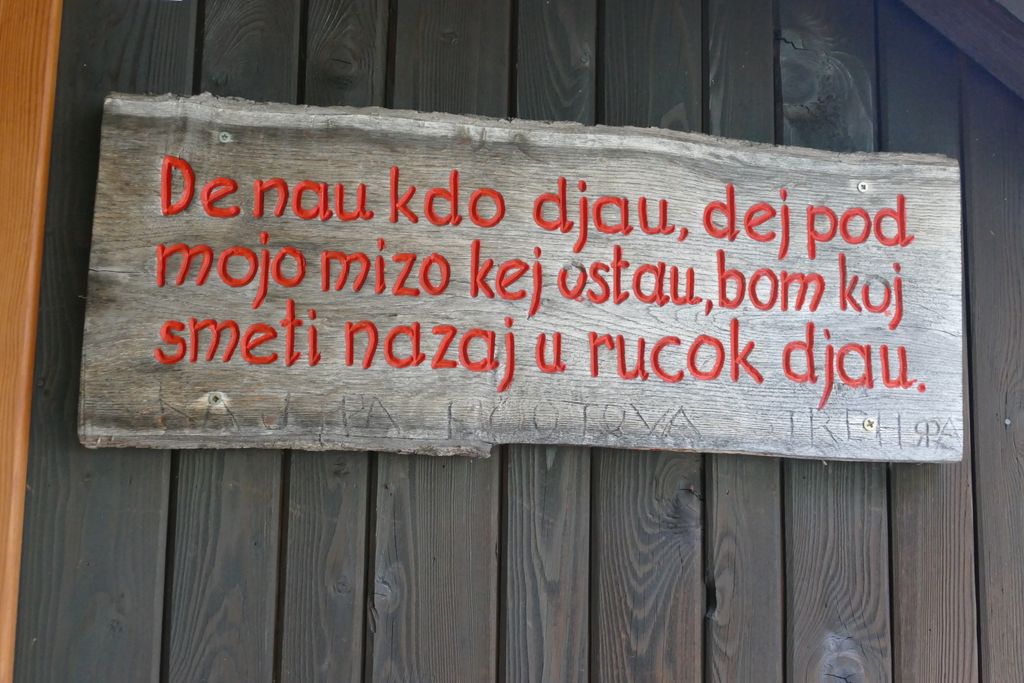 De nau kdo djau, dej pod
mojo mizo kej ostau, bom koj
smeti nazaj u rucok djau.
KAJ PA